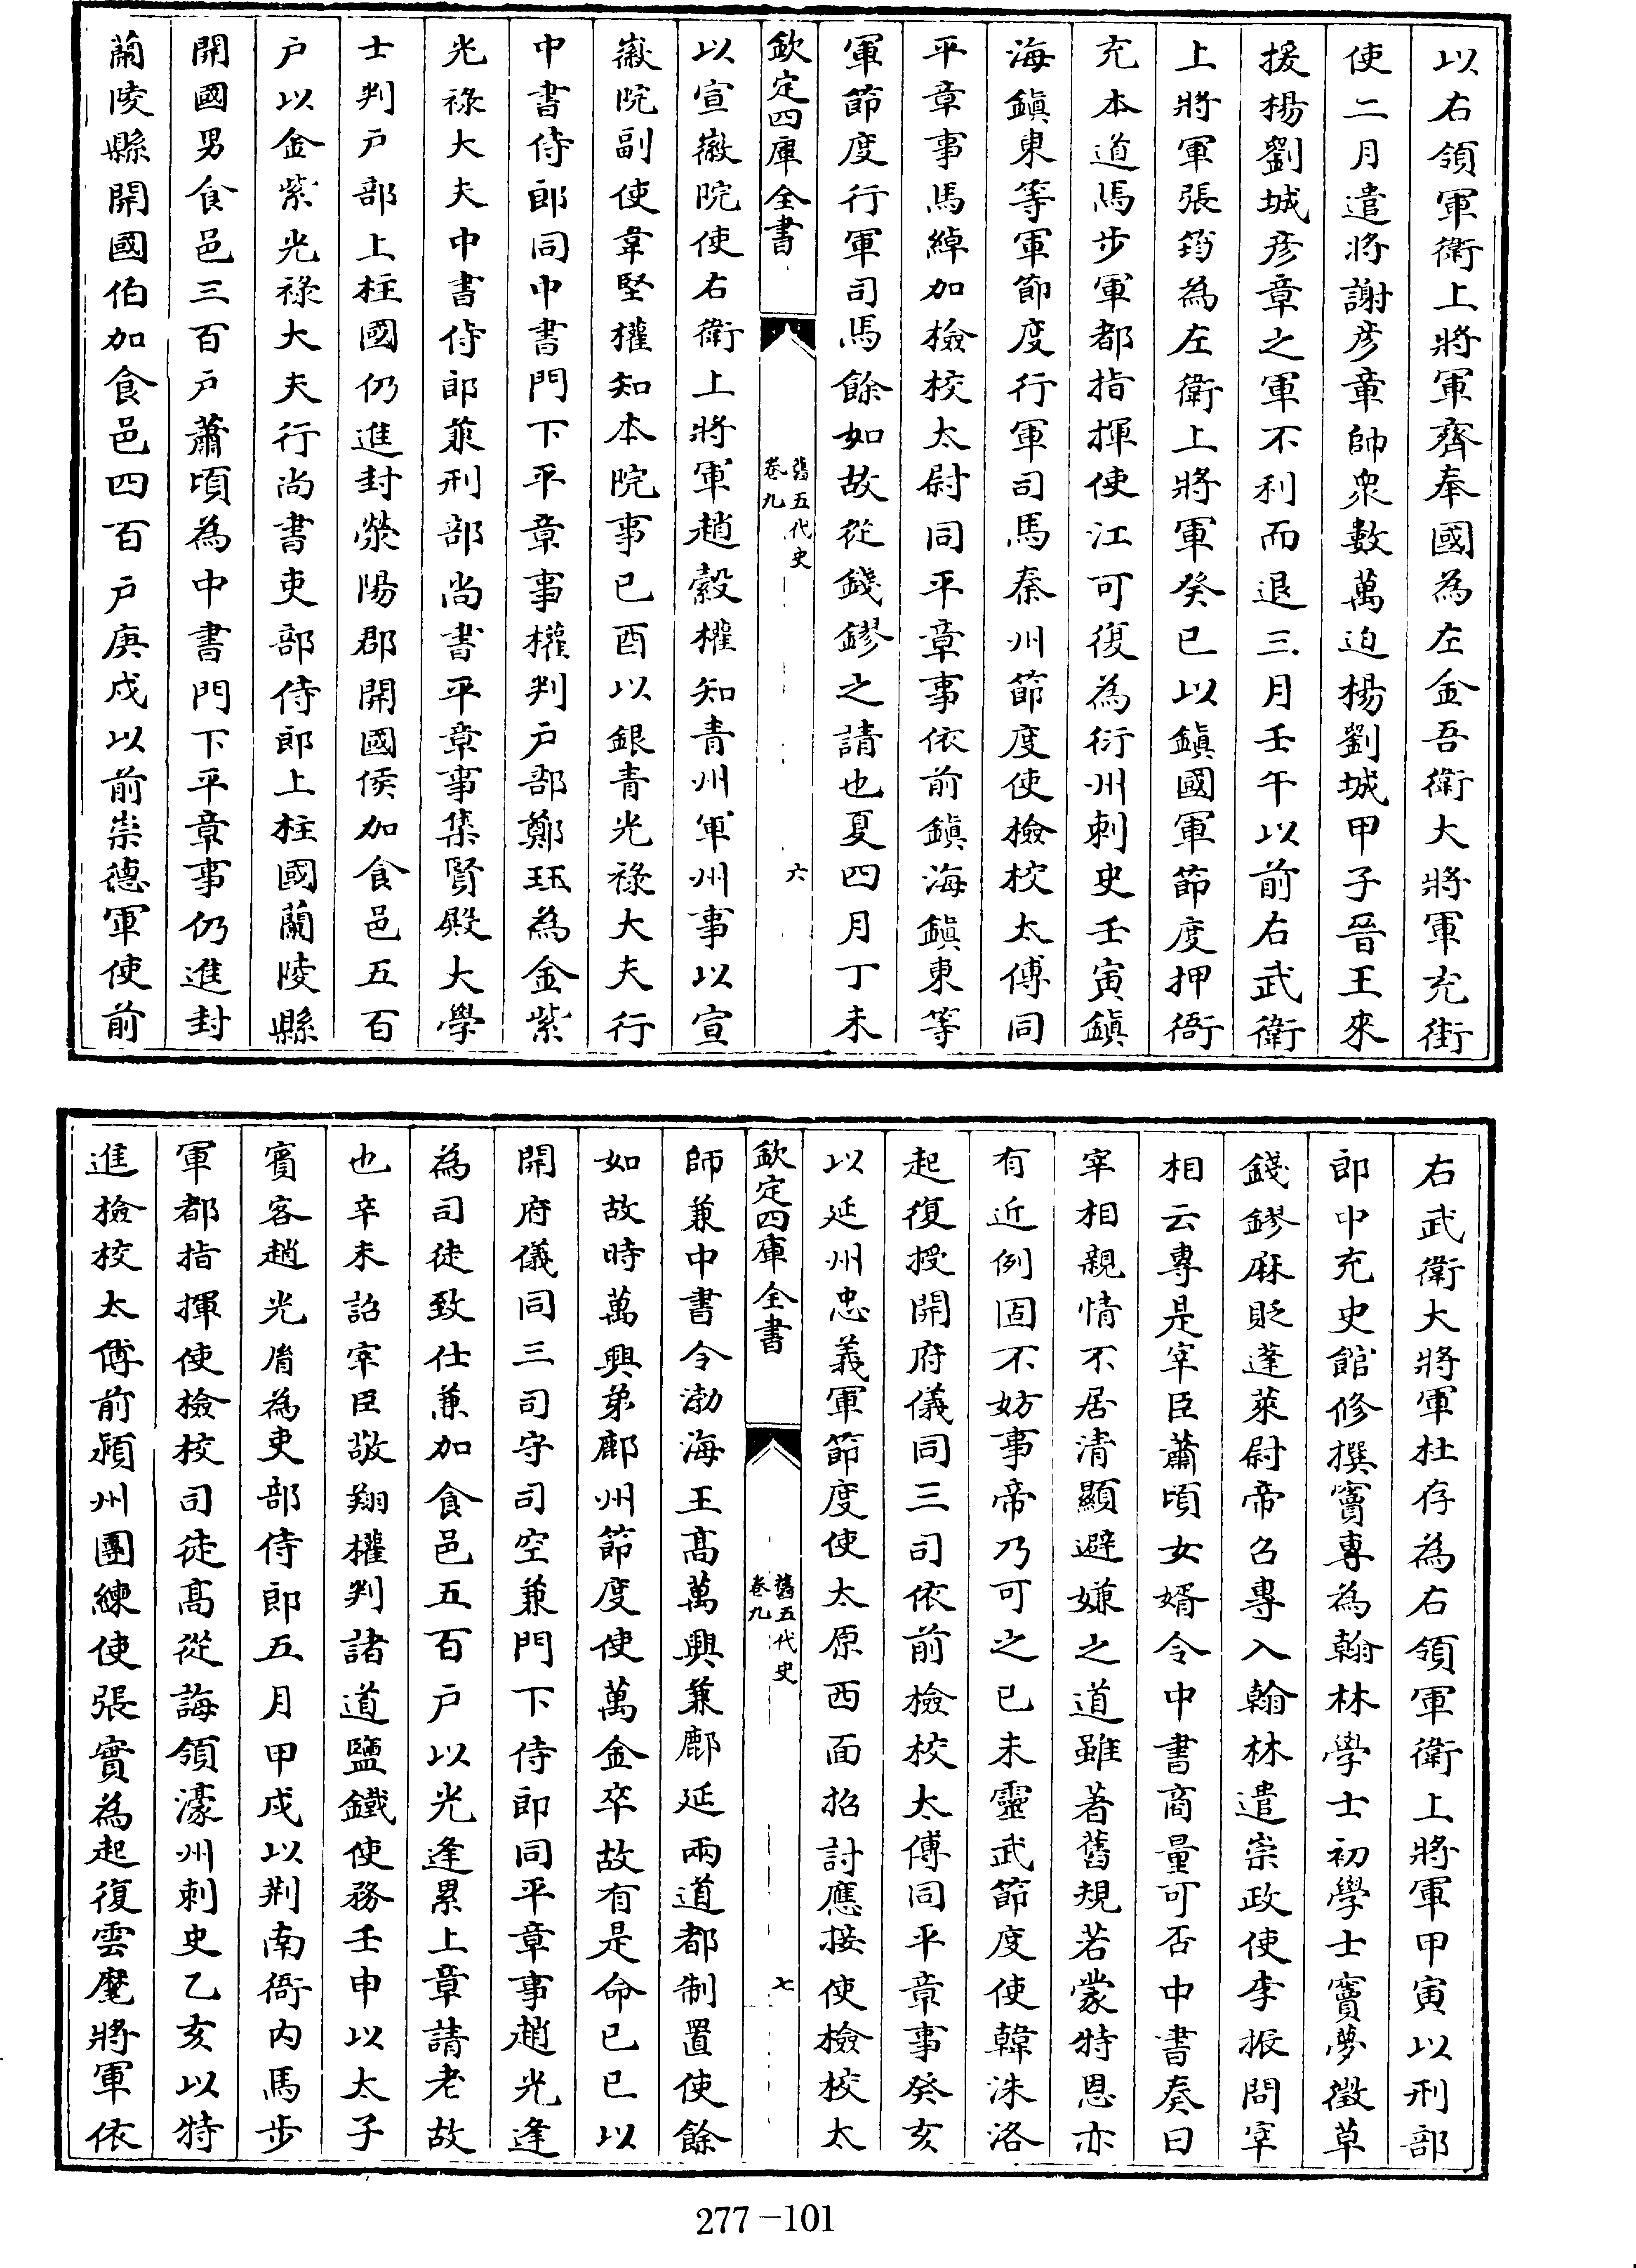 以右領軍衛上將軍齊奉國為左金吾衛大將軍充街
使二月遣將謝彦章帥衆數萬迫楊劉城甲子晉王來
援楊劉城彦章之軍不利而退三月壬午以前右武衛
上將軍張筠為左衛上將軍癸巳以鎮國軍節度押衙
充本道馬步軍都指揮使江可復為衍州刺史壬寅鎮
海鎮東等軍節度行軍司馬秦州節度使檢校太傅同
平章事馬綽加檢校太尉同平章事依前鎮海鎮東等
軍節度行軍司馬餘如故從錢鏐之請也夏四月丁未
欽定四庫全書
舊五代史
卷九
六
以宣徽院使右衛上將軍趙縠權知青州軍州事以宣
徽院副使韋堅權知本院事已酉以銀青光祿大夫行
中書侍郎同中書門下平章事權判户部鄭珏為金紫
光祿大夫中書侍郎兼刑部尚書平章事集賢殿大學
士判户部上柱國仍進封滎陽郡開國侯加食邑五百
户以金紫光祿大夫行尚書吏部侍郎上柱國蘭陵縣
開國男食邑三百户蕭頃為中書門下平章事仍進封
蘭陵縣開國伯加食邑四百户庚戍以前崇德軍使前
右武衛大將軍杜存為右領軍衛上將軍甲寅以刑部
郎中充史館修撰竇專為翰林學士初學士竇夢徵草
錢鏐麻貶蓬萊尉帝召專入翰林遣崇政使李振問宰
相云專是宰臣蕭頃女婿令中書商量可否中書奏曰
宰相親情不居清顯避嫌之道雖著舊規若蒙特恩亦
有近例固不妨事帝乃可之已未靈武節度使韓洙洛
起復授開府儀同三司依前檢校太傅同平章事癸亥
以延州忠義軍節度使太原西面招討應接使檢校太
欽定四庫全書
舊五代史
卷九
七
師兼中書令渤海王高萬興兼鄜延兩道都制置使餘
如故時萬興弟鄜州節度使萬金卒故有是命已巳以
開府儀同三司守司空兼門下侍郎同平章事趙光逢
為司徒致仕兼加食邑五百户以光逢累上章請老故
也辛未詔宰臣敬翔權判諸道鹽鐵使務壬申以太子
賓客趙光胤為吏部侍郎五月甲戌以荆南衙内馬步
軍都指揮使檢校司徒高從誨領濠州刺史乙亥以特
進檢校太傅前潁州團練使張實為起復雲麾將軍依
277-101